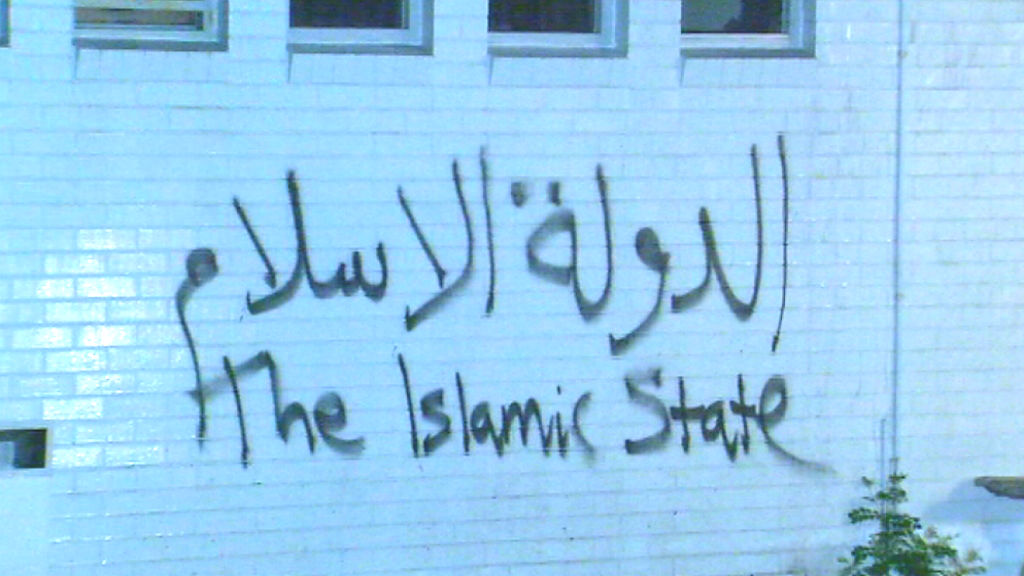 الدولة الاسلام
The Islamic State